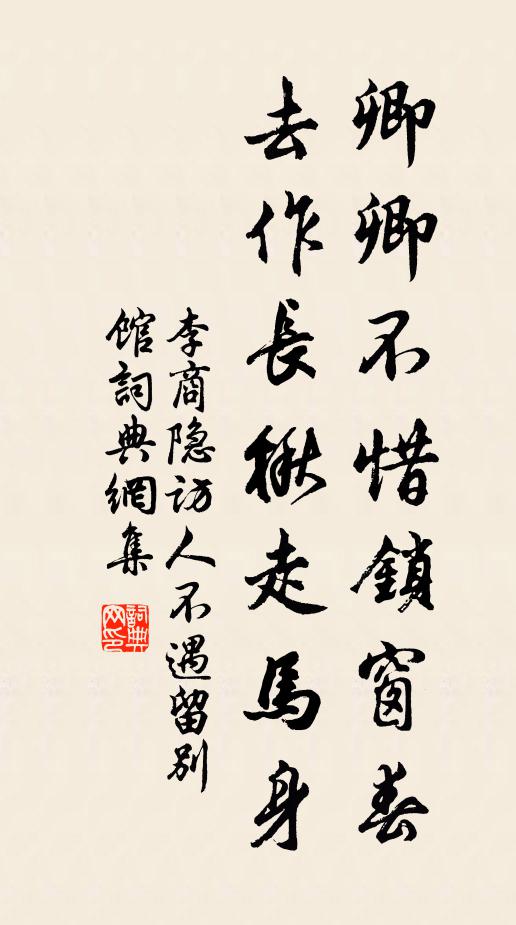 卿卿不惜鎖窗春
去作長楸走馬身
李商隐訪人不遇留别
館詞典網集
詞典网印